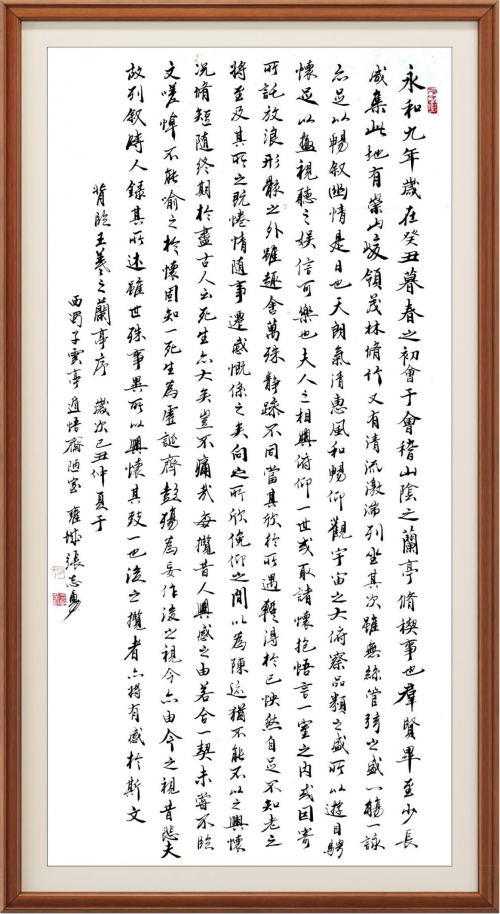 永和九年歲在癸丑暮春之初會于會稽山陰之蘭亭脩稧事也羣賢畢至少長
咸集此地有崇山峻領茂林脩竹又有清流激湍列坐其次雖無絲管弦之盛一觴一詠
亦足以暢叙幽情是日也天朗氣清惠風和暢仰觀宇宙之大俯察品類之盛所以遊目騁
懷足以極視聽之娛信可樂也夫人之相與俯仰一世或取諸懷抱悟言一室之內或因寄
所託放浪形骸之外雖趣舍萬殊靜躁不同當其欣於所遇蹔得於己怏然自足不知老之
將至及其所之既惓情隨事遷感慨係之矣向之所欣俛仰之間以為陳迹猶不能不以之興懷
況脩短隨終期於盡古人云死生亦大矣豈不痛哉每攬昔人興感之由若合一契未嘗不臨
文嗟悼不能喻之於懷固知一死生為虛誕齊彭殤為妄作後之視今亦由今之視昔悲夫
故列叙時人錄其所述雖世殊事異所以興懷其致一也後之攬者亦將有感於斯文
背臨王羲之蘭亭序 歲次己丑仲夏于
西蜀子雲亭 悟齋陋室 張志勇